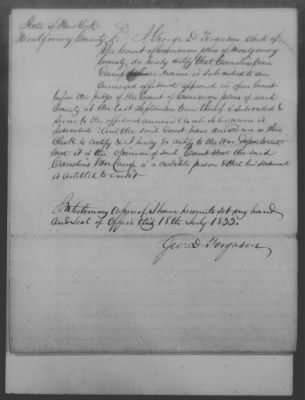 State of New York
Montgomery County } I George D. Ferguson Clerk of
the Court of Common pleas of Montgomery
County, do hereby certify that Caroline Van
Camp whose name is subscribed to an
annexed affidavit appeared in open Court
before the judges of the Court of Common pleas of said
County at the last September term thereof & subscribed &
swore to the affidavit annexed & to which his name is
subscribed. And the said Court have directed me as their
Clerk to certify & I hereby do certify to the War Department
that it is the opinion of said Court that the said
Caroline Van Camp is a credible person & that his statement
is entitled to credit
In testimony whereof I have hereunto set my hand
and seal of Office this 18th July 1822.
Geo. D. Ferguson